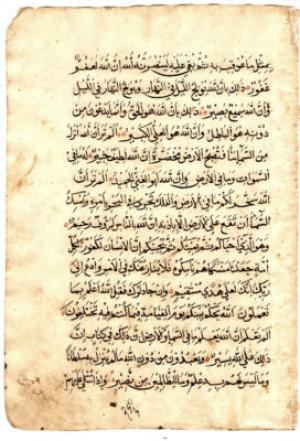 بِمِثْلِ مَا عُوقِبَ بِهِ ثُمَّ بُغِيَ عَلَيْهِ لَيَنْصُرَنَّهُ اللهُ اِنَّ اللهَ لَعَفُوٌّ
غَفُورٌ ذَلِكَ بِاَنَّ اللهَ يُولِجُ اللَّيْلَ فِي النَّهَارِ وَيُولِجُ النَّهَارَ فِي اللَّيْلِ
وَاَنَّ اللهَ سَمِيعٌ بَصِيرٌ ذَلِكَ بِاَنَّ اللهَ هُوَ الْحَقُّ وَاَنَّ مَا يَدْعُونَ مِنْ
دُونِهِ هُوَ الْبَاطِلُ وَاَنَّ اللهَ هُوَ الْعَلِيُّ الْكَبِيرُ اَلَمْ تَرَ اَنَّ اللهَ اَنْزَلَ
مِنَ السَّمَاءِ مَاءً فَتُصْبِحُ الْاَرْضُ مُخْضَرَّةً اِنَّ اللهَ لَطِيفٌ خَبِيرٌ لَهُ مَا فِي
السَّمَوَاتِ وَمَا فِي الْاَرْضِ وَاِنَّ اللهَ لَهُوَ الْغَنِيُّ الْحَمِيدُ اَلَمْ تَرَ اَنَّ
اللهَ سَخَّرَ لَكُمْ مَا فِي الْاَرْضِ وَالْفُلْكَ تَجْرِي فِي الْبَحْرِ بِاَمْرِهِ وَيُمْسِكُ
السَّمَاءَ اَنْ تَقَعَ عَلَى الْاَرْضِ اِلَّا بِاِذْنِهِ اِنَّ اللهَ بِالنَّاسِ لَرَؤُفٌ رَحِيمٌ
وَهُوَ الَّذِي اَحْيَاكُمْ ثُمَّ يُمِيتُكُمْ ثُمَّ يُحْيِيكُمْ اِنَّ الْاِنْسَانَ لَكَفُورٌ لِكُلِّ
اُمَّةٍ جَعَلْنَا مَنْسَكًا هُمْ نَاسِكُوهُ فَلَا يُنَازِعُنَّكَ فِي الْاَمْرِ وَادْعُ اِلَى
رَبِّكَ اِنَّكَ لَعَلَى هُدًى مُسْتَقِيمٍ وَاِنْ جَادَلُوكَ فَقُلِ اللهُ اَعْلَمُ بِمَا
تَعْمَلُونَ اللهُ يَحْكُمُ بَيْنَكُمْ يَوْمَ الْقِيَامَةِ فِيمَا كُنْتُمْ فِيهِ تَخْتَلِفُونَ
اَلَمْ تَعْلَمْ اَنَّ اللهَ يَعْلَمُ مَا فِي السَّمَاءِ وَالْاَرْضِ اِنَّ ذَلِكَ فِي كِتَابٍ اِنَّ
ذَلِكَ عَلَى اللهِ يَسِيرٌ وَيَعْبُدُونَ مِنْ دُونِ اللهِ مَا لَمْ يُنَزِّلْ بِهِ سُلْطَانًا
وَمَا لَيْسَ لَهُمْ بِهِ عِلْمٌ وَمَا لِلظَّالِمِينَ مِنْ نَصِيرٍ وَاِذَا تُتْلَى عَلَيْهِمْ